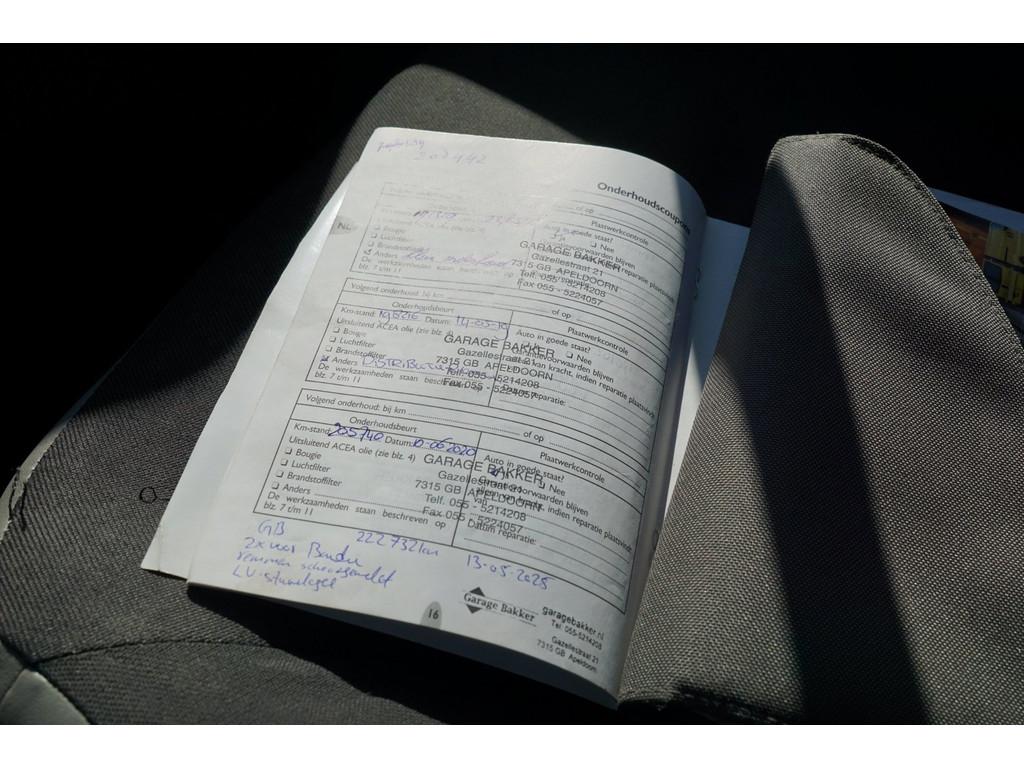 202442
Onderhoudscoupons
of op
Plaatwerkcontrole
Auto in goede staat?
Ja
Nee
Bougie
Luchtfilter
Anders
De werkzaamheden staan
blz. 7 t/m 11
GARAGE BAKKER
Gazellestraat 21
7315 GB APELDOORN
Telf. 055 - 5214208
Fax 055 - 5224057
Volgend onderhoud: bij km
of op
Onderhoudsbeurt
Plaatwerkcontrole
Km-stand: 198216 Datum: 14-05-19
Auto in goede staat?
Uitsluitend ACEA olie (zie blz. 4)
Nee
Bougie
Garantievoorwaarden blijven
Luchtfilter
van kracht, indien reparatie plaatsvindt
Brandstoffilter
Anders DISTRIBUTIE
De werkzaamheden staan beschreven op
blz. 7 t/m 11
reparatie:
GARAGE BAKKER
Gazellestraat 21
7315 GB APELDOORN
Telf. 055 - 5214208
Fax 055 - 5224057
Volgend onderhoud: bij km
of op
Onderhoudsbeurt
Plaatwerkcontrole
Km-stand: 205740 Datum: 10-06-2020
Auto in goede staat?
Uitsluitend ACEA olie (zie blz. 4)
Nee
Bougie
Garantievoorwaarden blijven
Luchtfilter
van kracht, indien reparatie plaatsvindt
Brandstoffilter
Anders
De werkzaamheden staan beschreven op
blz. 7 t/m 11
Datum reparatie:
GARAGE BAKKER
Gazellestraat 21
7315 GB APELDOORN
Telf. 055 - 5214208
Fax 055 - 5224057
GB 222732km 13-05-2025
2x voor Banden
remmen schoongemaakt
LV-stuurkogel
16
Garage Bakker
garagebakker.nl
Tel: 055-5214208
Gazellestraat 21
7315 GB Apeldoorn